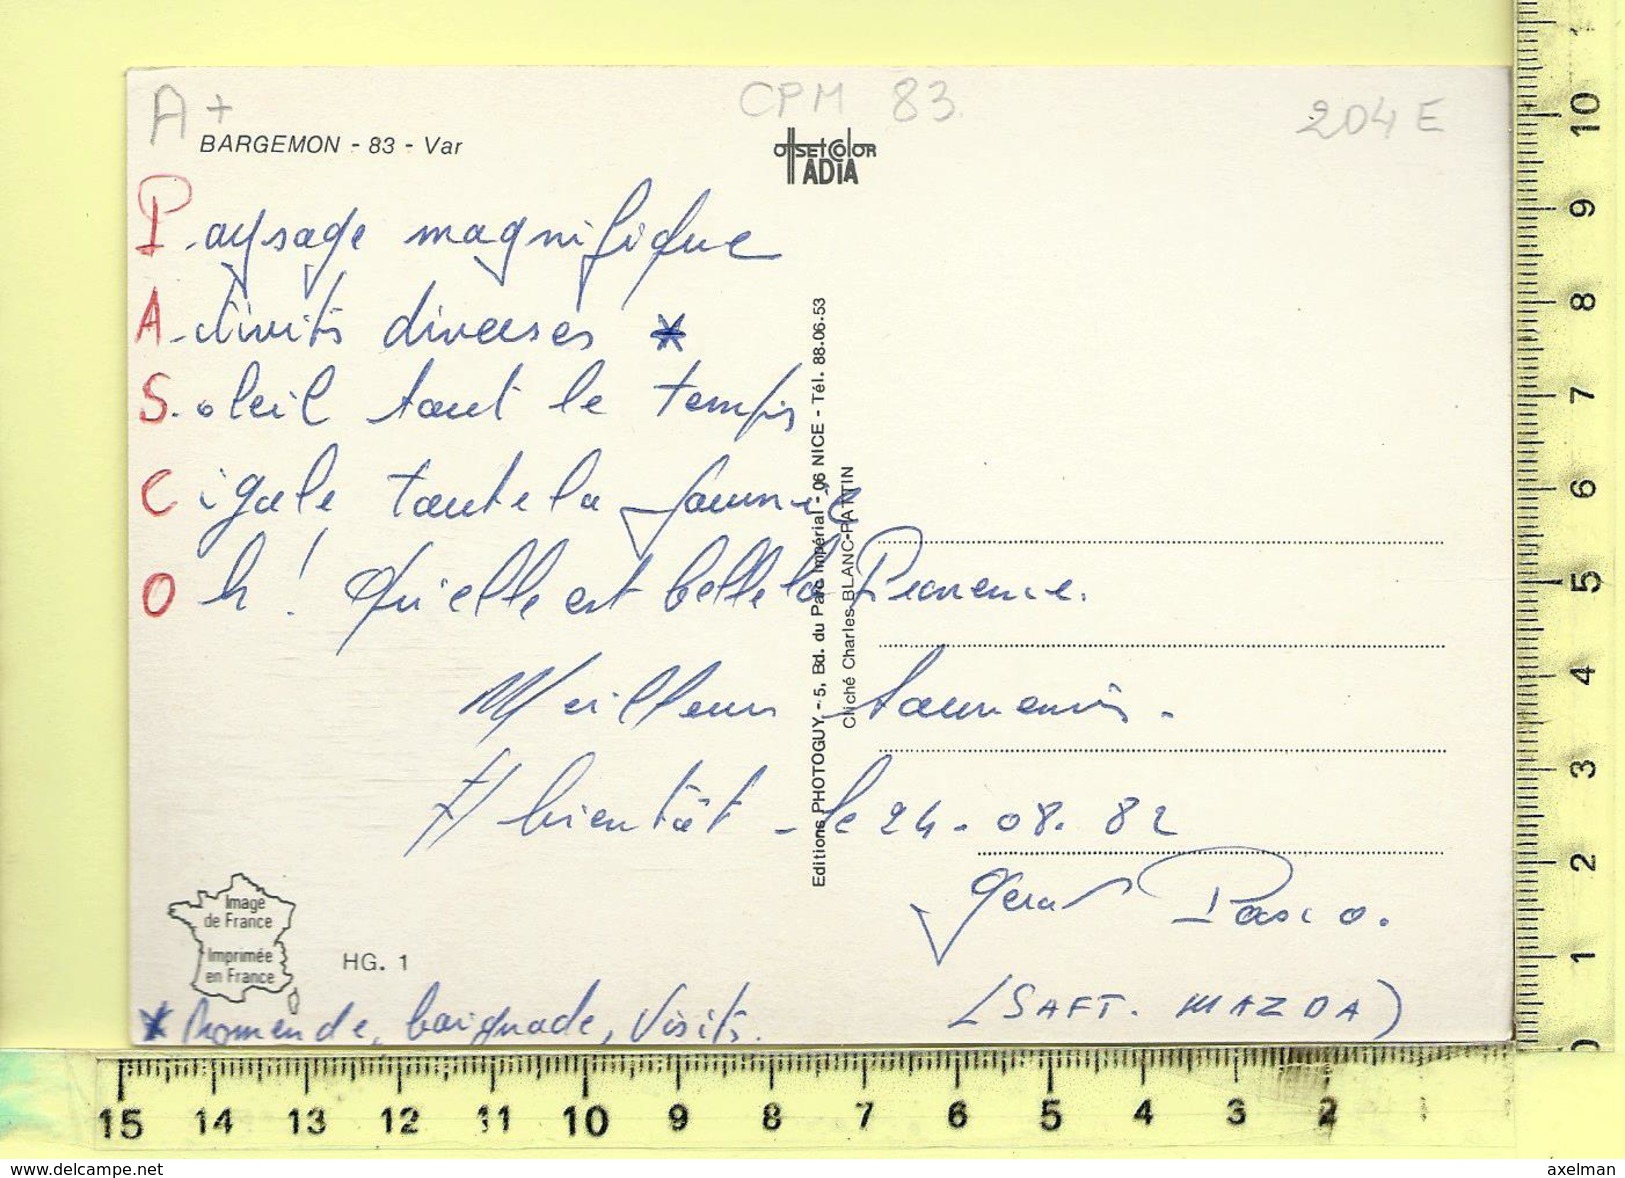 A+
CPM 83
204 E
BARGEMON - 83 - Var
OffSEtColOR
ADIA
Paysage magnifique
Activités diverses *
Soleil tout le temps
Cigale toute la journée
Oh ! Qu'elle est belle la Provence.
Meilleurs souvenirs.
A bientôt - le 24.08.82
Pasco.
(SAFT. MAZDA)
* Promenade, baignade, Visites.
Editions PHOTOGUY, - 5, Bd. du Parc Impérial - 06 NICE - Tél. 88.06.53
Cliché Charles BLANC-PATTIN
Image
de France
Imprimée
en France
HG. 1
10
9
8
7
6
5
4
3
2
1
15 14 13 12 11 10 9 8 7 6 5 4 3 2 1
www.delcampe.net
axelman